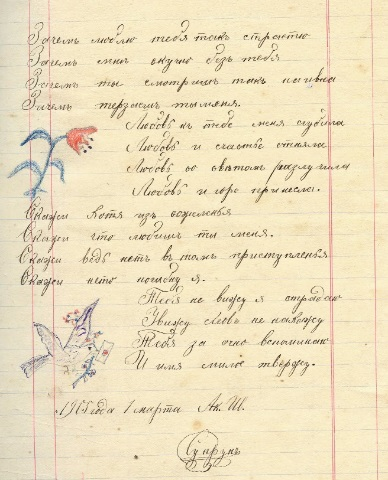 Зачемъ люблю тебя такъ страстно
Зачемъ мнѣ скучно безъ тебя
Зачемъ ты смотришъ такъ наивна
Зачемъ терзаешъ ты меня.
Любовь къ тебе меня сгубила
Любовь и счастье отняла
Любовь со светомъ разлучила
Любовь и горе принесла.
Скажи хотя изъ сожиленья
Скажи что любишъ ты меня.
Скажи ведь нетъ въ томъ приступленья
Скажи нето погибну я.
Тебя не вижу я страдаю
Увижу вновь не нахожу
Тебя за очно вспоминаю
И имя милое твержу.
года 1 марта Ак. Ш.
Супрунъ